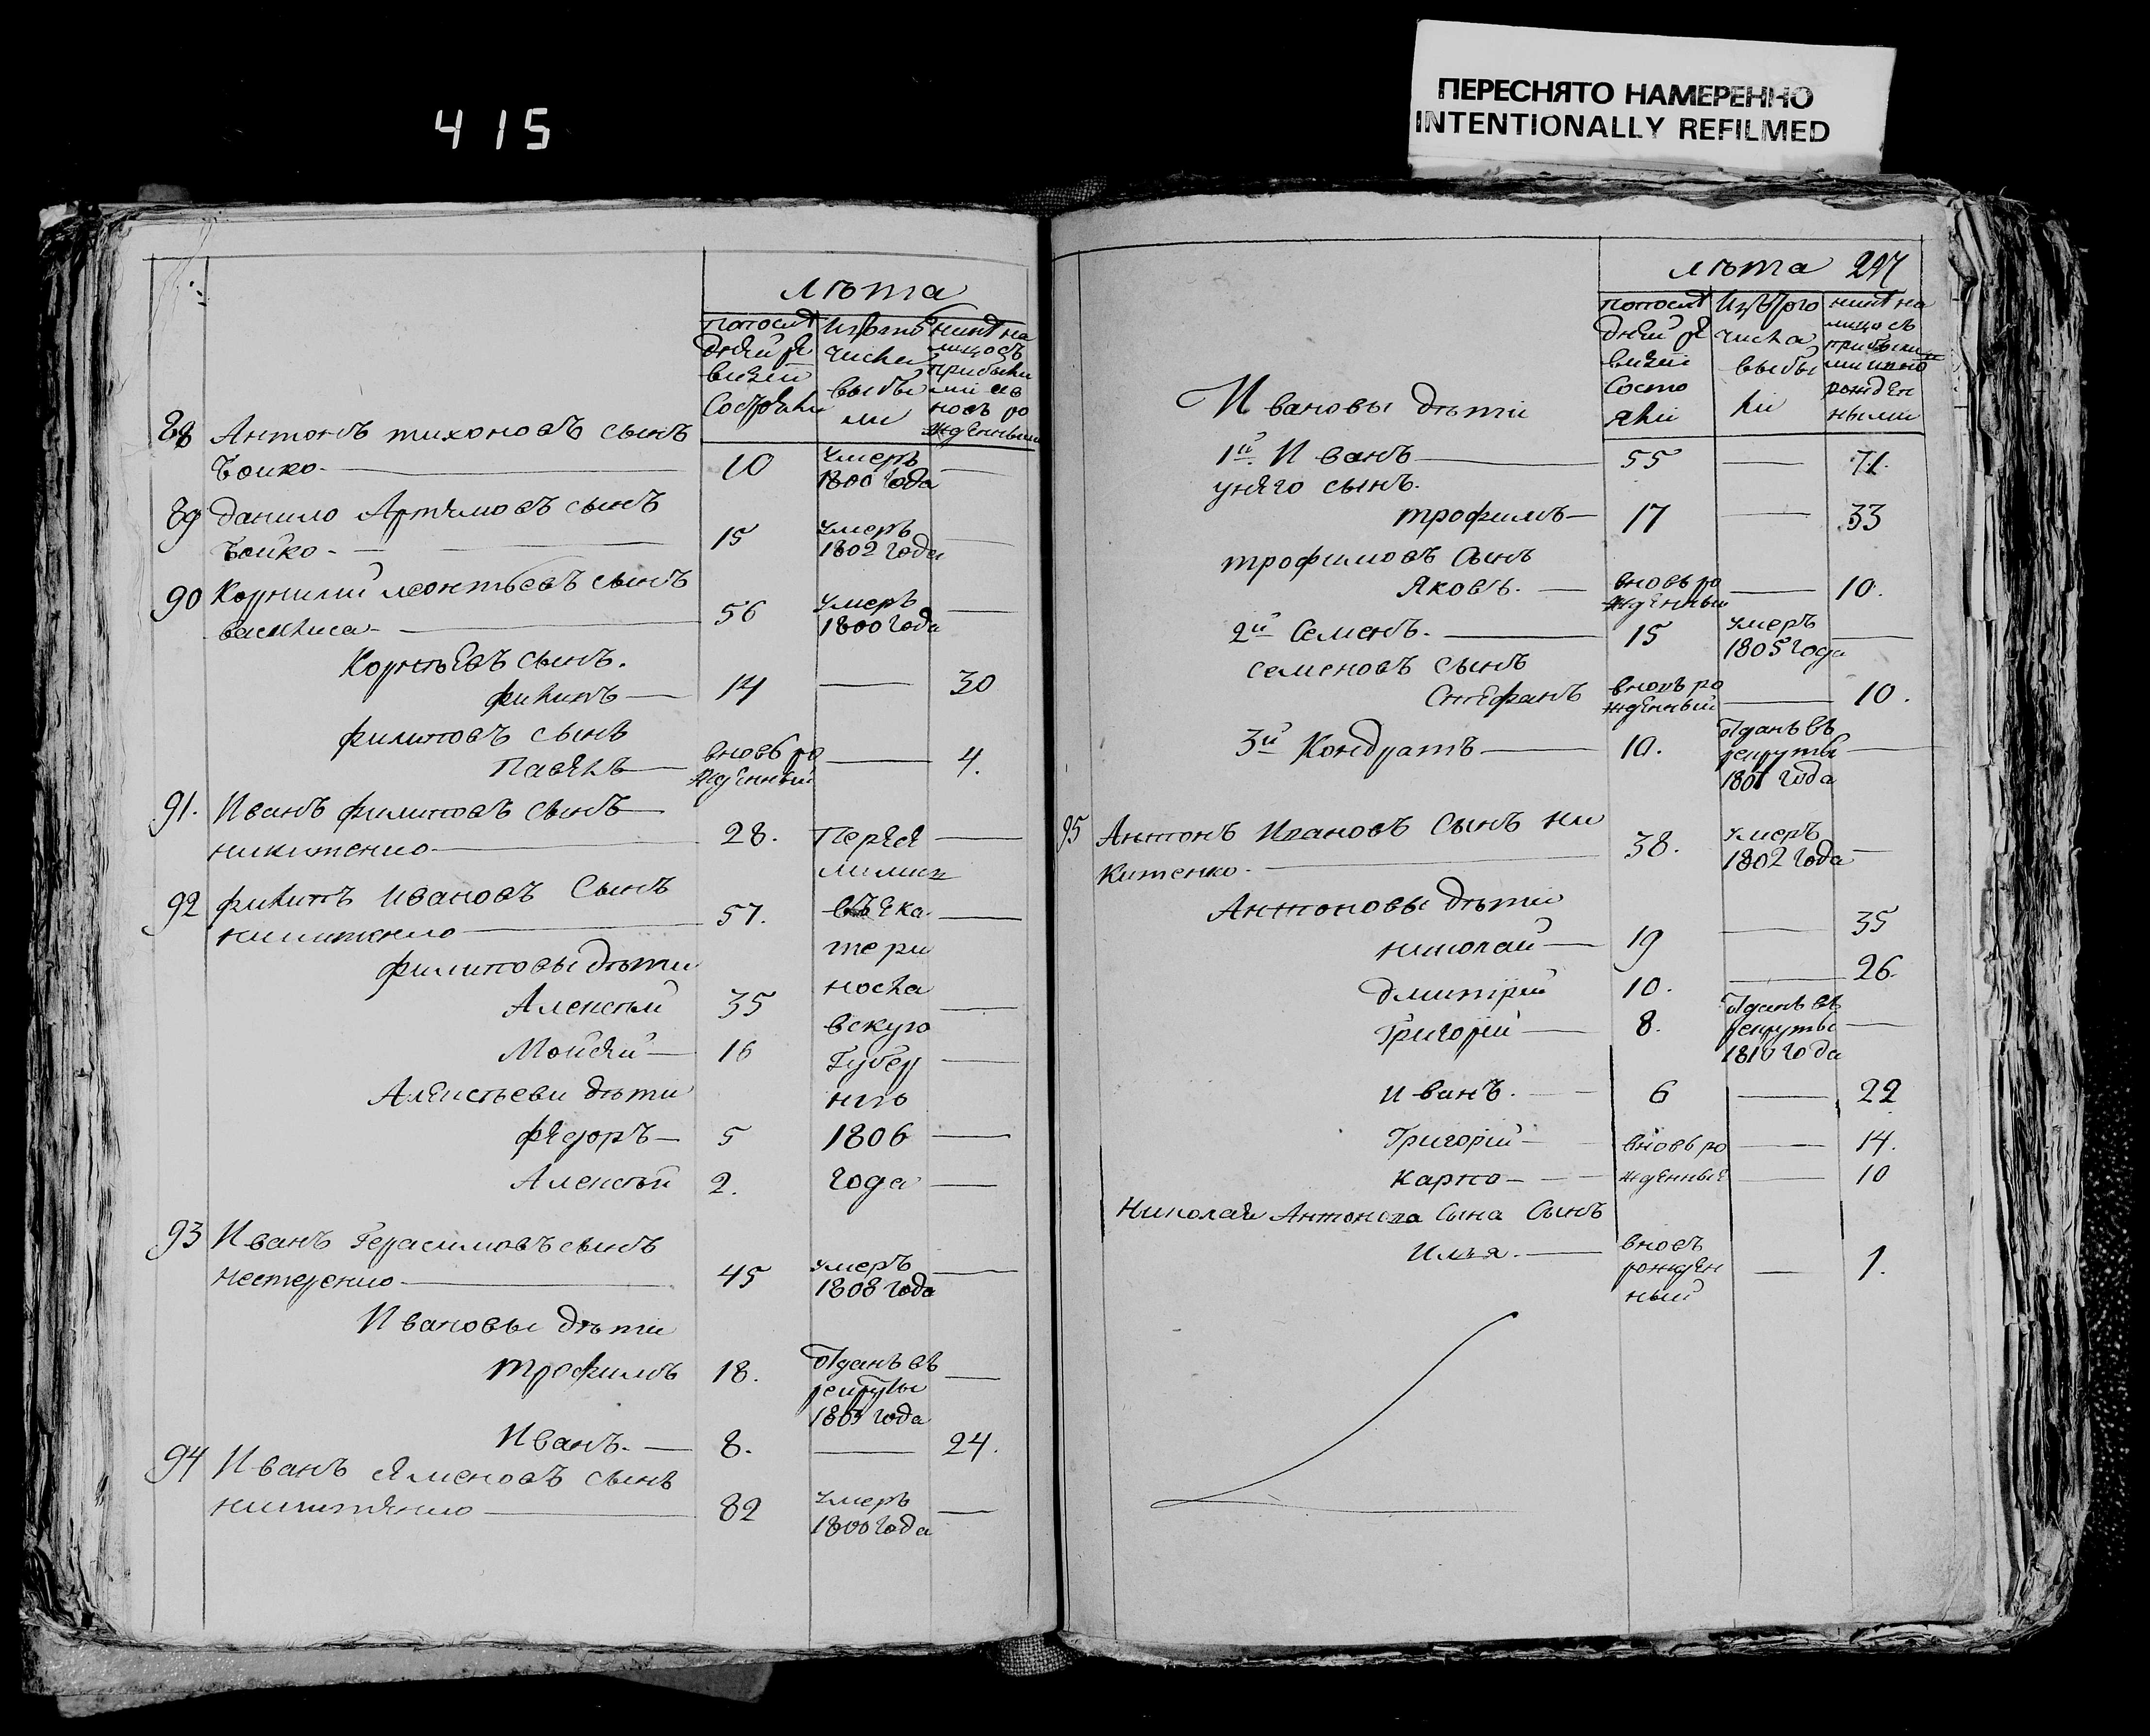 415
ПЕРЕСНЯТО НАМЕРЕННО
INTENTIONALLY REFILMED
лѣта
попослѣ
дней ре
визіи
Состояли
Изтого
числа
выбы
ли
нынѣ на
лицо съ
прибылы
ми и в
новь ро
жденными
88 Антонъ тихоновъ сынъ
Бойко 10 Умеръ
1800 года
89 данило Артемовъ сынъ
Бойко 15 Умеръ
1802 года
90 Корнилий леонтьевъ сынъ
56 Умеръ
1800 года
Корнѣевъ сынъ.
филипъ 14 30
филиповъ сынъ
Павелъ вновь ро
жденный 4.
91. Иванъ филиповъ сынъ
никитенко 28. Пересе
лилис
92 филипъ Ивановъ Сынъ
никитенко 57. въ Ека
тери
филиповы дѣти
носла
Алексѣй 35
вскую
Мойсей 16 Губер
Алексѣеви дѣти нію
федоръ 5 1806
Алексѣй 2. года
93 Иванъ Герасимовъ сынъ
нестеренко 45 умеръ
1808 года
Ивановы дѣти
трофимъ 18. Отданъ въ
рекруты
года
Иванъ. 8. 24.
94 Иванъ Семеновъ сынъ
никитенко 82 Умеръ
1800 года
лѣта 297
попослѣ
дней ре
визіи
Состо
яли
Изтого
числа
выбы
ли
нынѣ на
лицо съ
прибылы
ми и вно
рожден
ными
Ивановы дѣти
1й. Иванъ 55 71.
унего сынъ.
трофимъ 17 33
трофимовъ Сынъ
Яковъ. вновь ро
жденный 10.
2й Семенъ. 15 умеръ
1805 года
семеновъ сынъ
Стефанъ вновь ро
жденный 10.
3й Кондратъ 10. Отданъ въ
рекруты
года
95 Антонъ Ивановъ Сынъ ни
китенко. 38. умеръ
1802 года
Антоновы дѣти
николай 19 35
дмитрий 10. 26.
Григорій 8. Отданъ въ
рекруты
1810 года
иванъ. 6 22
Григорій вновь ро 14.
карпо жденные 10
николая Антонова Сына Сынъ
илья. вновь
рожден
ный 1.